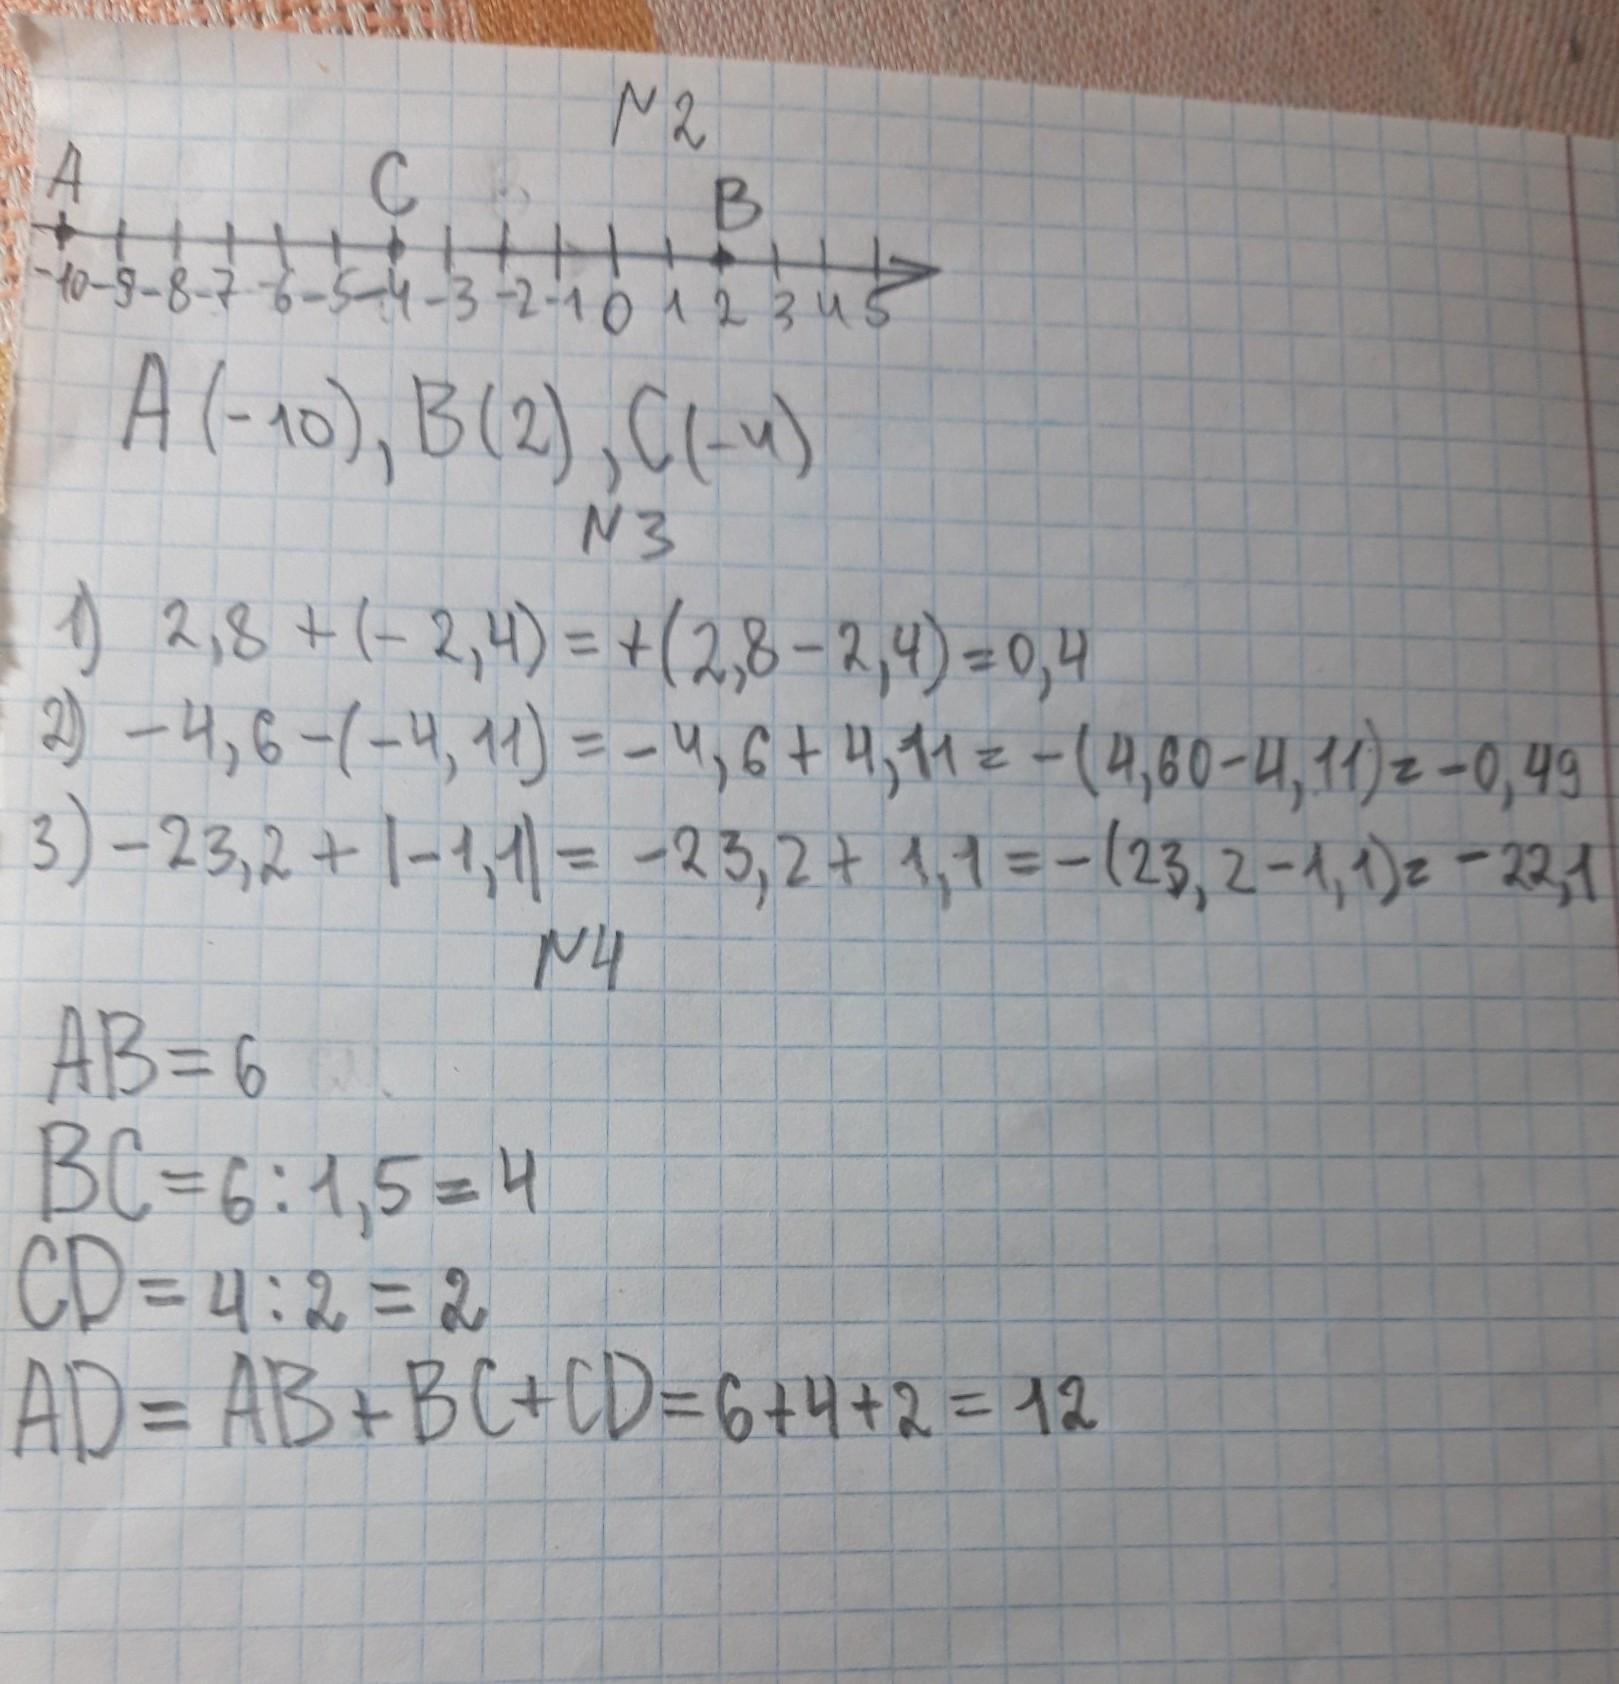 N2
A C B
-10 -9 -8 -7 -6 -5 -4 -3 -2 -1 0 1 2 3 4 5
A(-10), B(2), C(-4)
N3
1) 2,8 + (- 2,4) = +(2,8 - 2,4) = 0,4
2) -4,6 -(-4,11) = -4,6 + 4,11 = -(4,60-4,11) = -0,49
3) -23,2 + |-1,1| = -23,2 + 1,1 = -(23,2-1,1) = -22,1
N4
AB = 6
BC = 6 : 1,5 = 4
CD = 4 : 2 = 2
AD = AB + BC + CD = 6+4+2 = 12